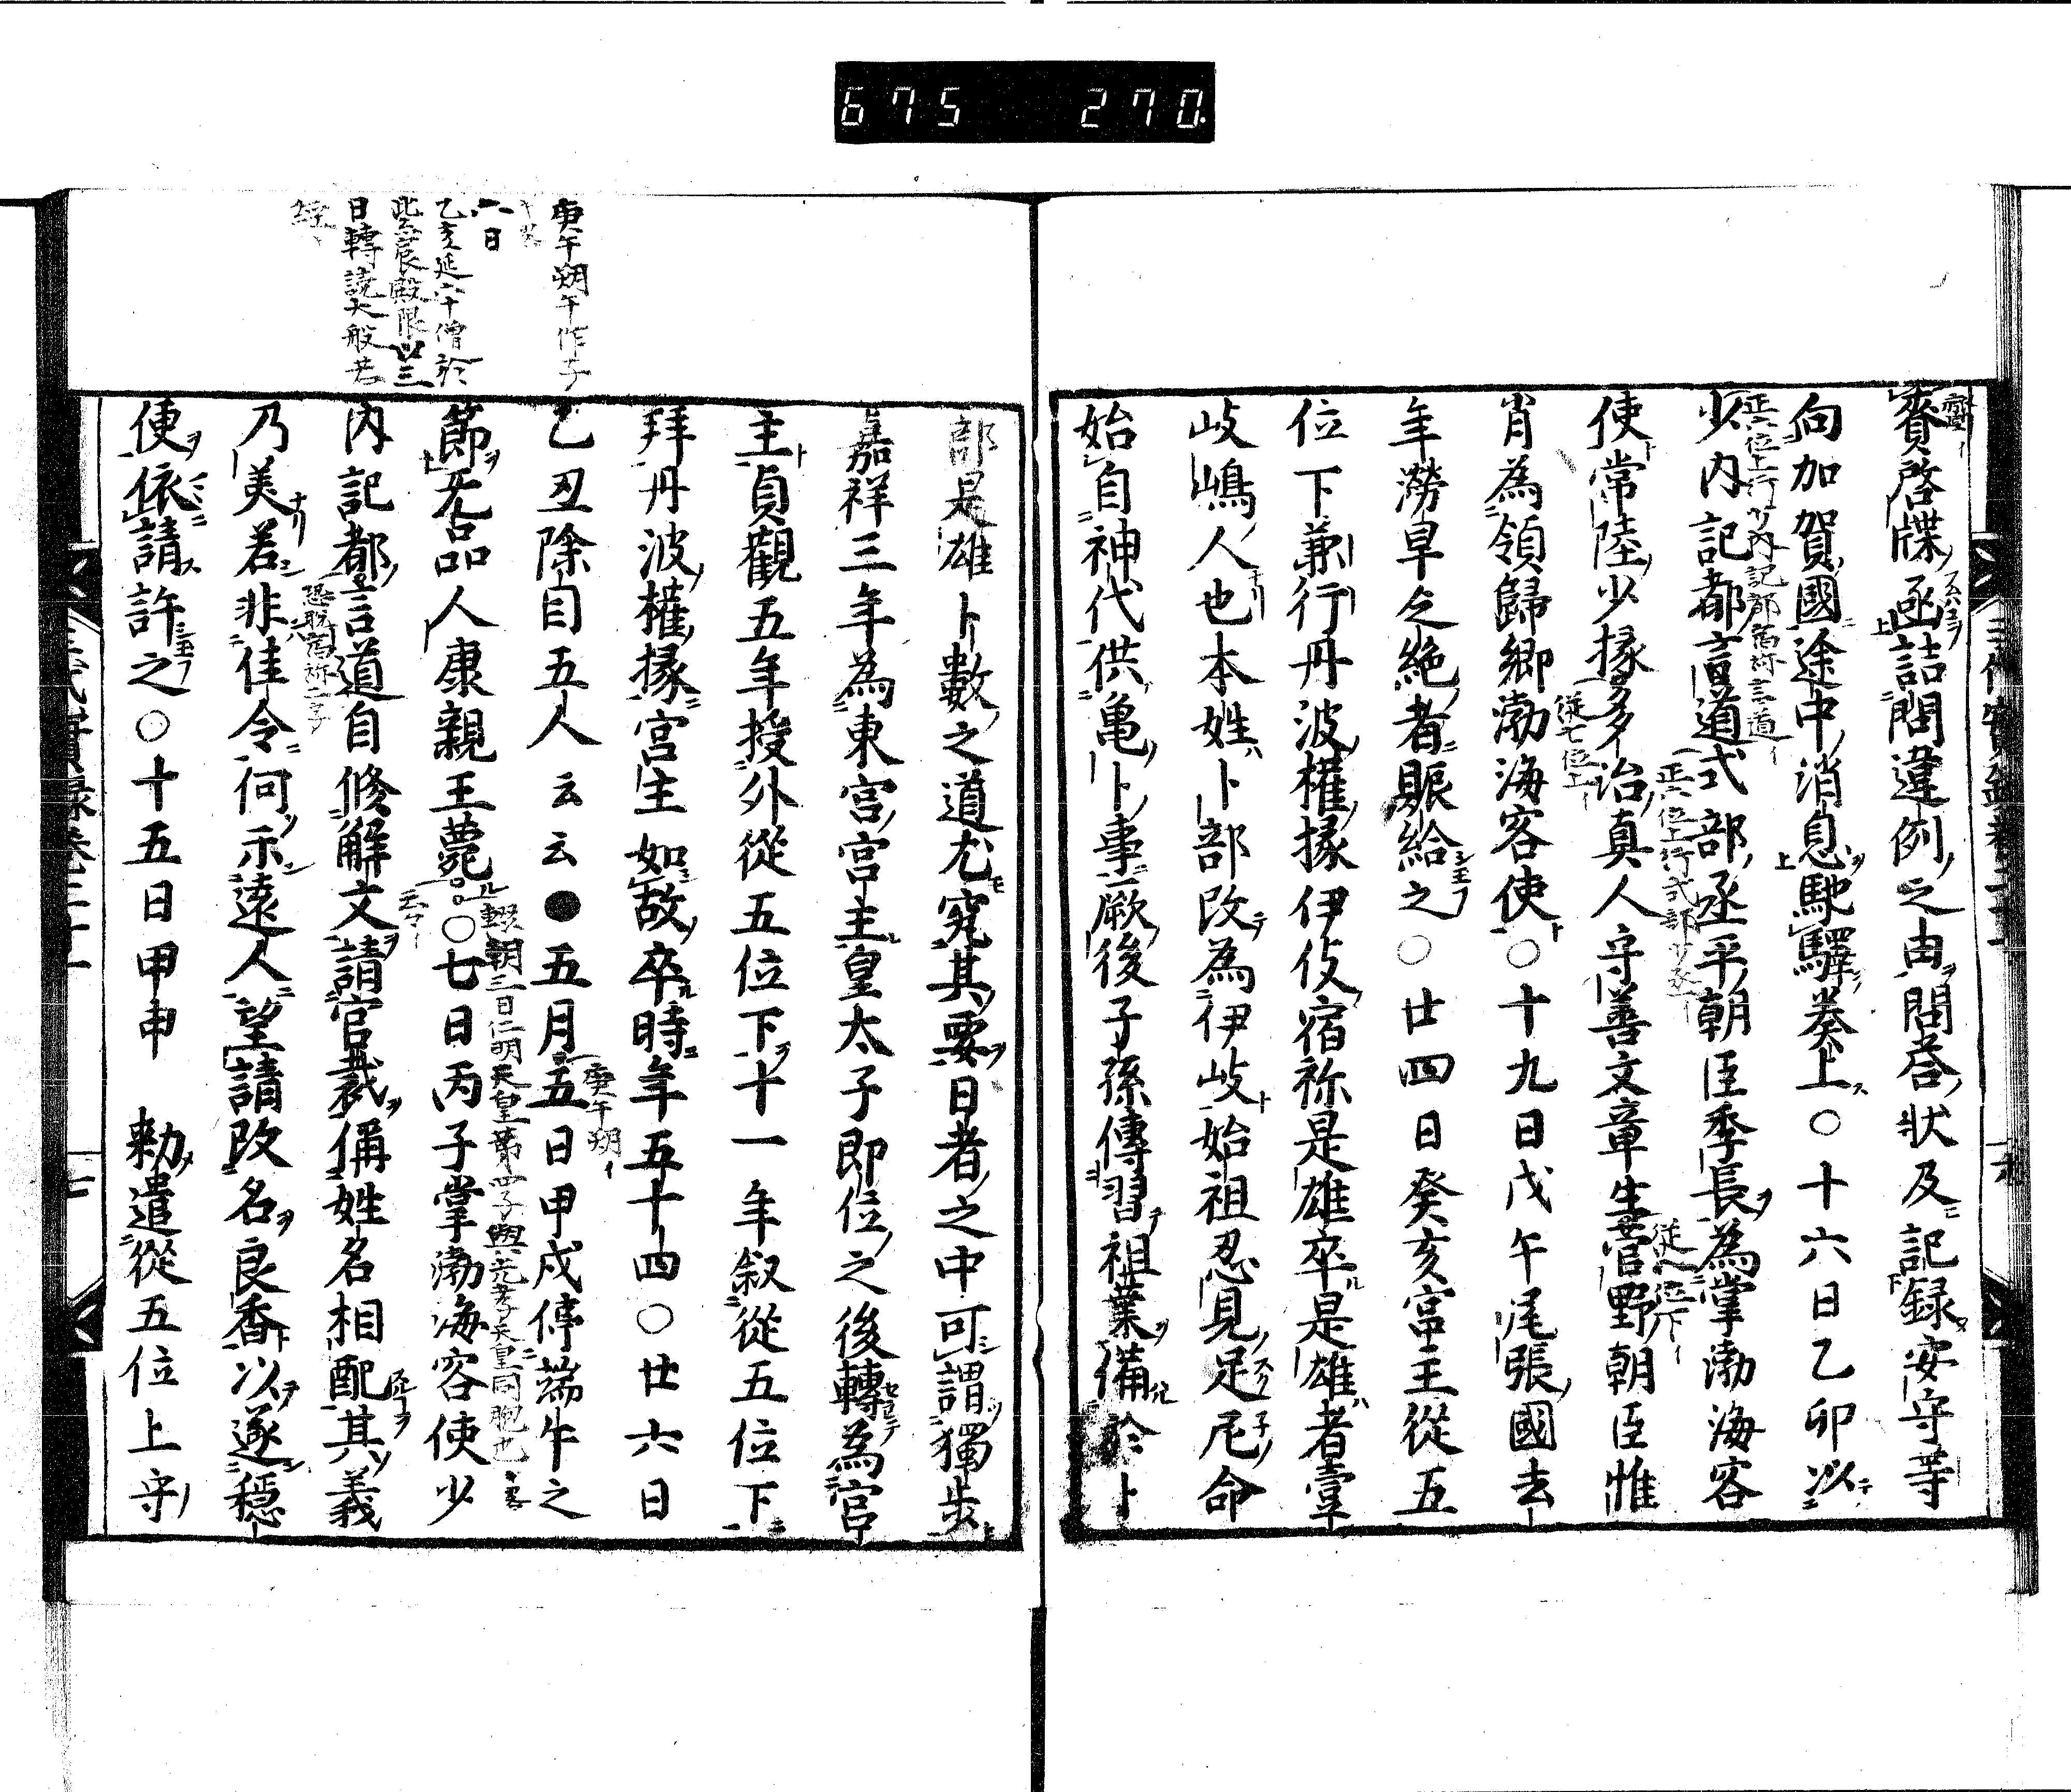 675 270
賚啓牒亟詰問違例之由問荅狀及記録安守等
向加賀國途中消息馳驛奏上○十六日乙卯以
少内記都言道式部丞平朝臣季長為掌渤海客
使常陸少掾多治真人守善文章生菅野朝臣惟
肖為領歸郷渤海客使○十九日戊午尾張國去
年澇旱乏絶者賑給之○廿四日癸亥宮主從五
位下兼行丹波權掾伊伎宿祢是雄卒是雄者壹
岐嶋人也本姓卜部改為伊岐始祖忍見足尼命
始自神代供亀卜事厥後子孫傳習祖業備於卜
部是雄卜數之道尤究其要日者之中可謂獨歩
嘉祥三年為東宮宮主皇太子即位之後轉為宮
主貞觀五年授外從五位下十一年叙從五位下
拜丹波權掾宮主如故卒時年五十四○廿六日
乙丑除目五人云云●五月五日甲戌停端午之
節无品人康親王薨○七日丙子掌渤海客使少
内記都言道自修解文請官裁偁姓名相配其義
乃美若非佳令何示遠人望請改名良香以遂穩
便依請許之○十五日甲申 勅遣從五位上守
齎
正六位上行少内記都宿祢言道
正六位上行式部少丞
從七位上
從八位下
庚午朔
輟朝三日仁明天皇第四子與光孝天皇同腹也
恐脱宿祢二字
庚午朔午作子
六日
乙亥延六十僧於
此宸殿限以三
日轉讀大般若
經
三代實録卷二十一
七